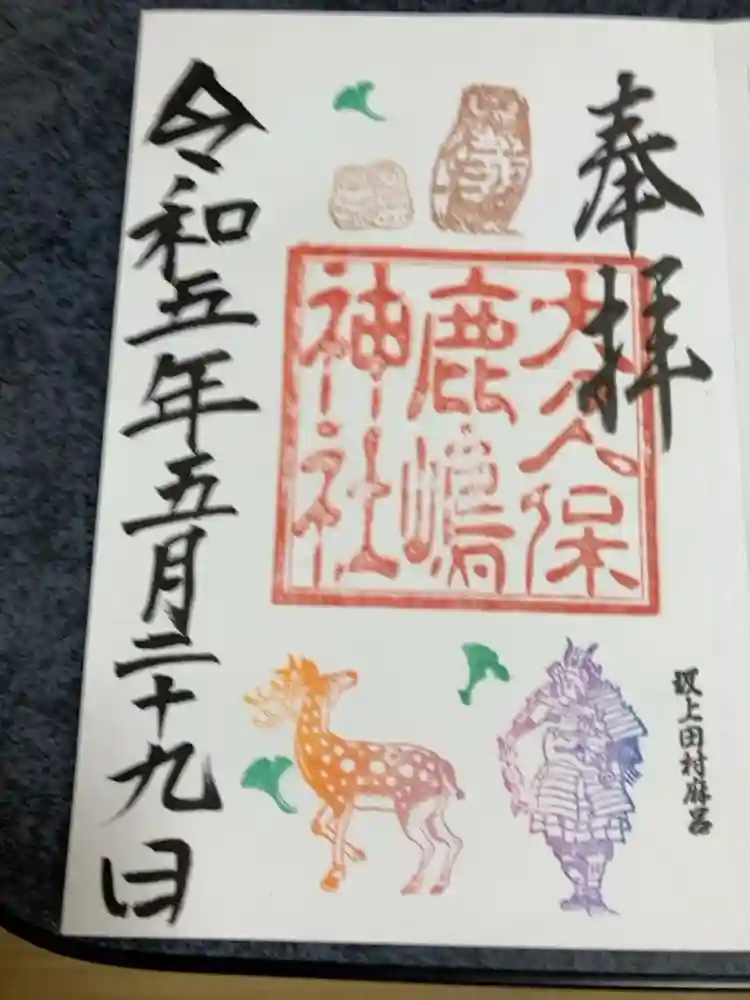 奉拝
大久保
鹿嶋
神社
坂上田村麻呂
令和五年五月二十九日